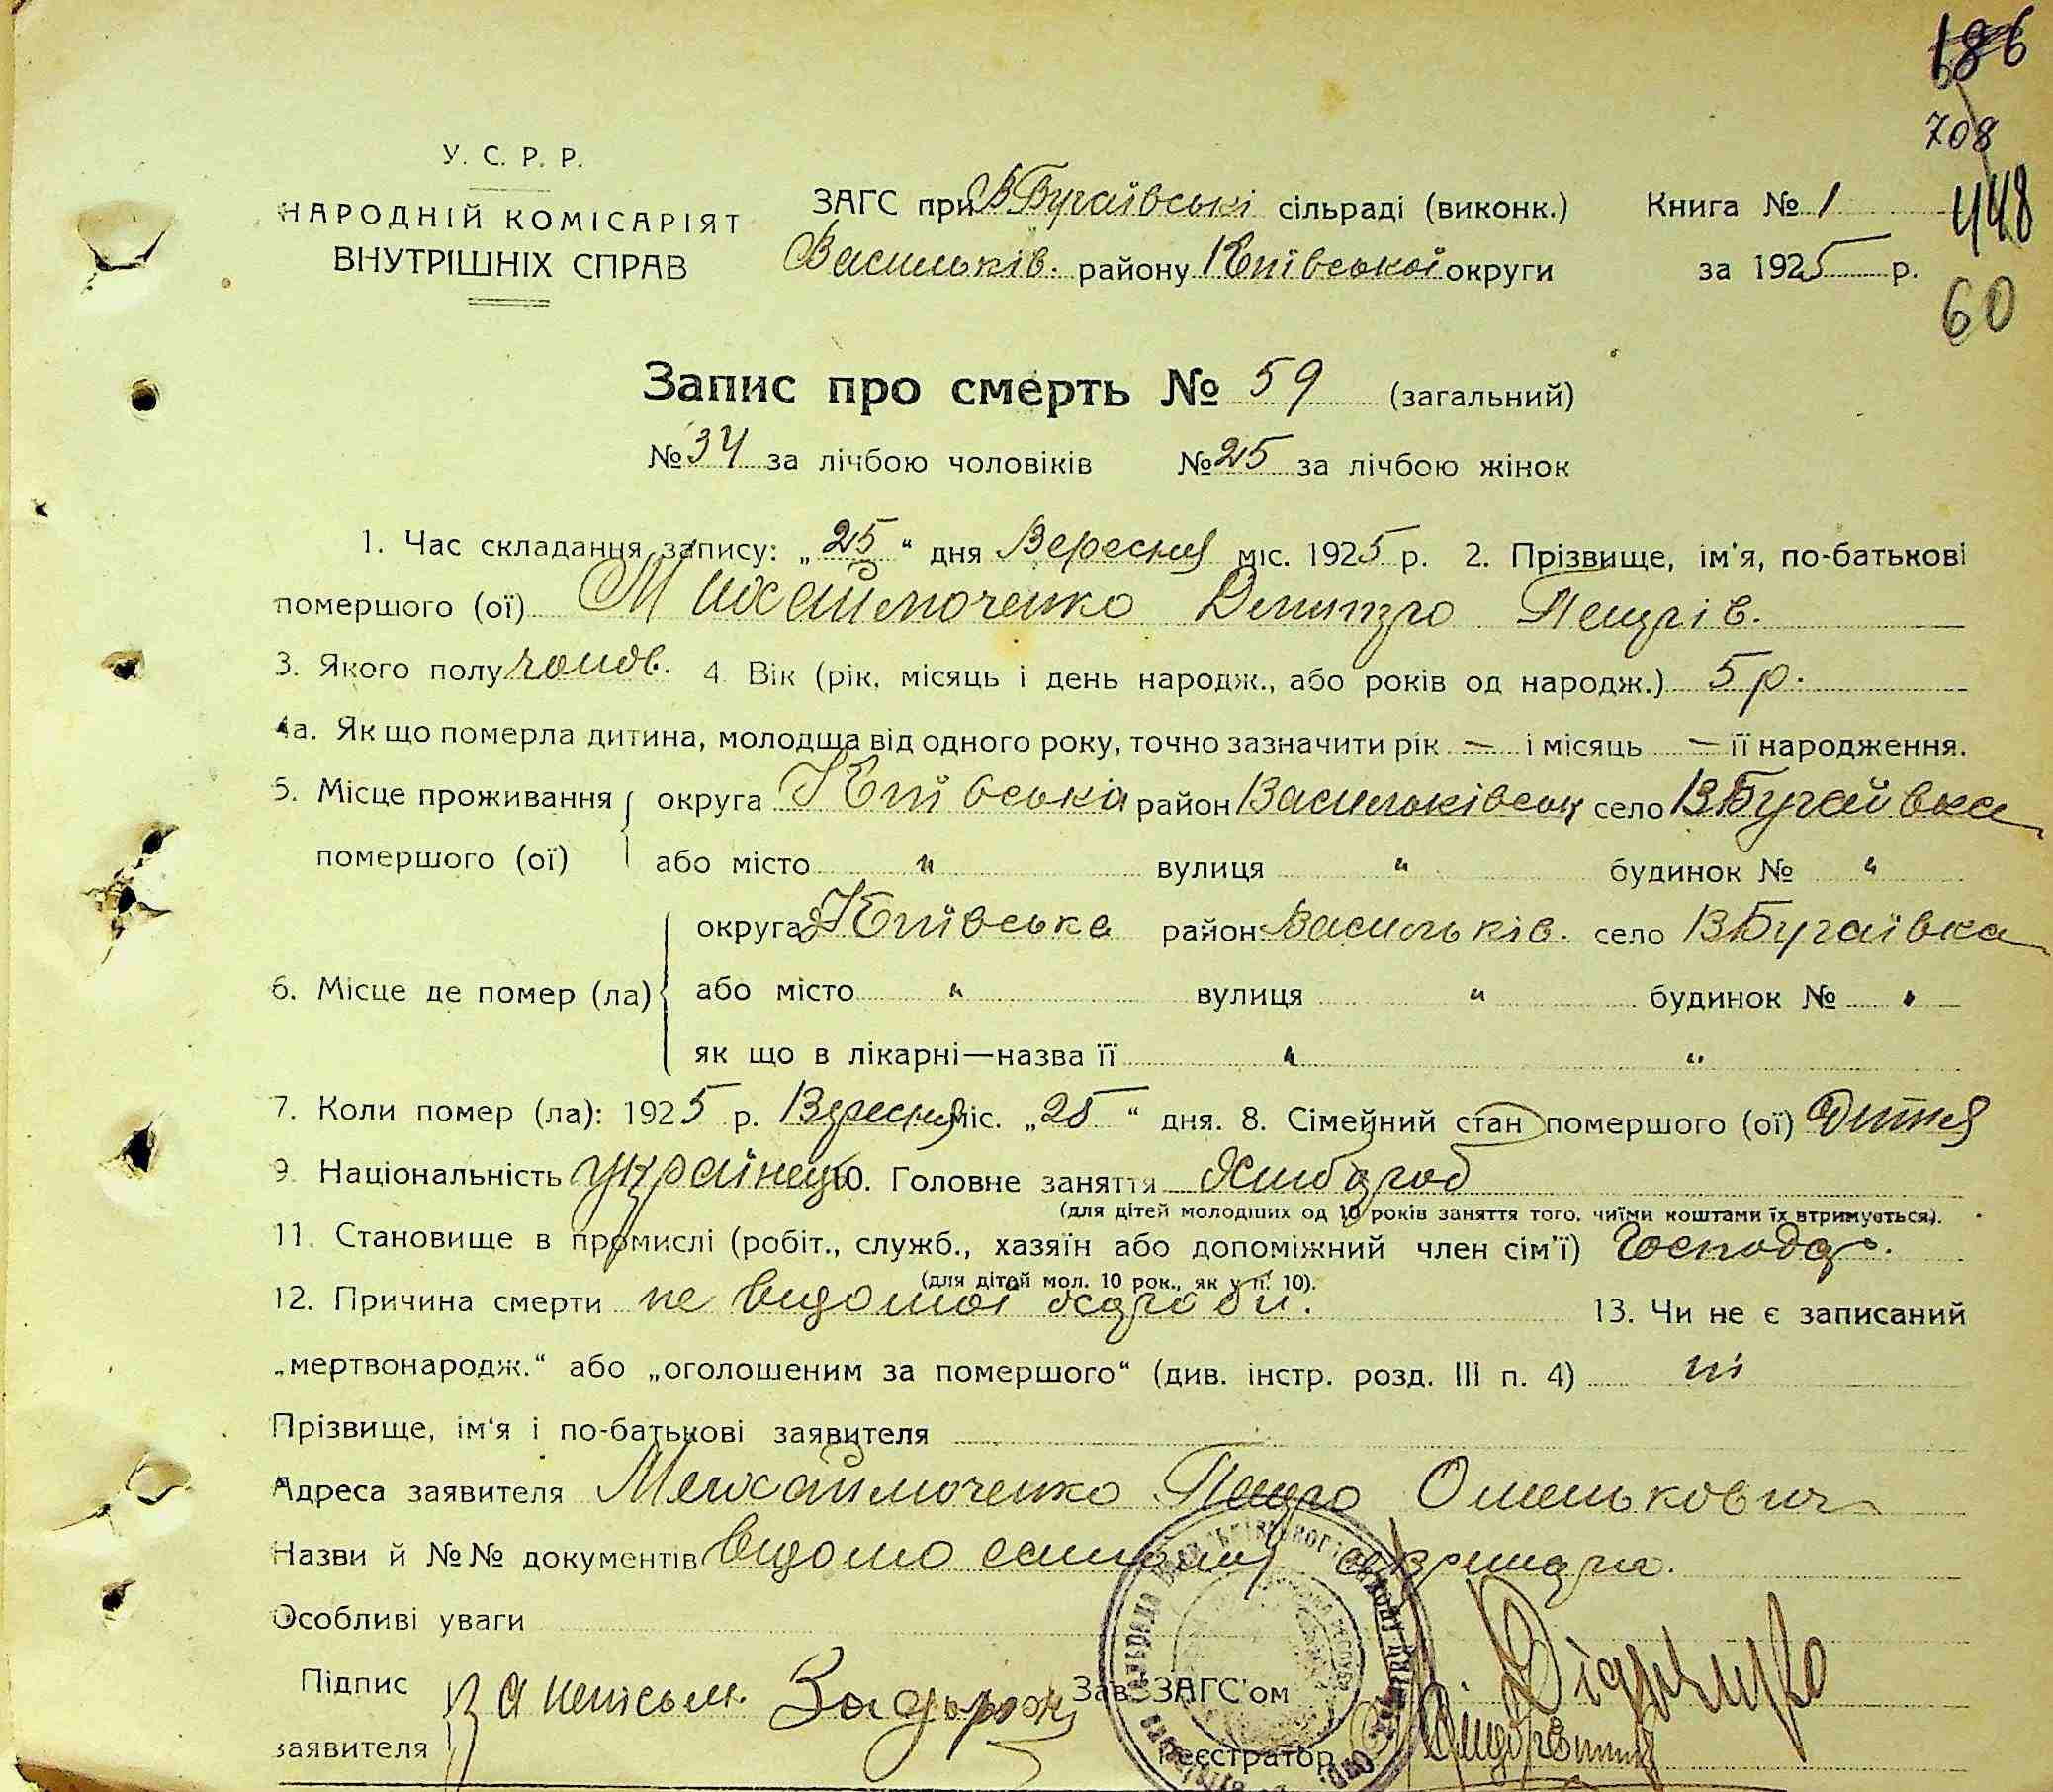 186
708
448
60
У. С. Р. Р.
НАРОДНІЙ КОМІСАРІЯТ
ВНУТРІШНІХ СПРАВ
ЗАГС при В Бугаївські сільраді (виконк.) Книга № 1
Васильків. району Київської округи за 1925 р.
Запис про смерть № 59 (загальний)
№ 34 за лічбою чоловіків № 25 за лічбою жінок
1. Час складання запису: „25“ дня Вересня міс. 1925 р. 2. Прізвище, ім'я, по-батькові
помершого (ої) Дмитро Петрів.
3. Якого полу чолов. 4. Вік (рік, місяць і день народж., або років од народж.) 5 р.
4а. Як що померла дитина, молодща від одного року, точно зазначити рік — і місяць — її народження.
5. Місце проживання округа Київська район село В Бугаївка
помершого (ої) або місто " вулиця " будинок № "
округа Київська район Васильків. село В Бугаївка
6. Місце де помер (ла) або місто " вулиця " будинок № "
як що в лікарні—назва її " "
7. Коли помер (ла): 1925 р. Вересня міс. „25“ дня. 8. Сімейний стан помершого (ої) Дитя
9. Національність українець 10. Головне заняття хлібороб
(для дітей молодших од 10 років заняття того, чиїми коштами їх втримується).
11. Становище в промислі (робіт., служб., хазяїн або допоміжний член сім'ї) Господар.
(для дітей мол. 10 рок., як у п. 10).
12. Причина смерти не відомої хороби. 13. Чи не є записаний
„мертвонародж.“ або „оголошеним за помершого“ (див. інстр. розд. III п. 4) ні
Прізвище, ім'я і по-батькові заявителя
Адреса заявителя Петро
Назви й №№ документів відомо
Особливі уваги
Підпис За неписьм. Зав. ЗАГС'ом
заявителя Реєстратор